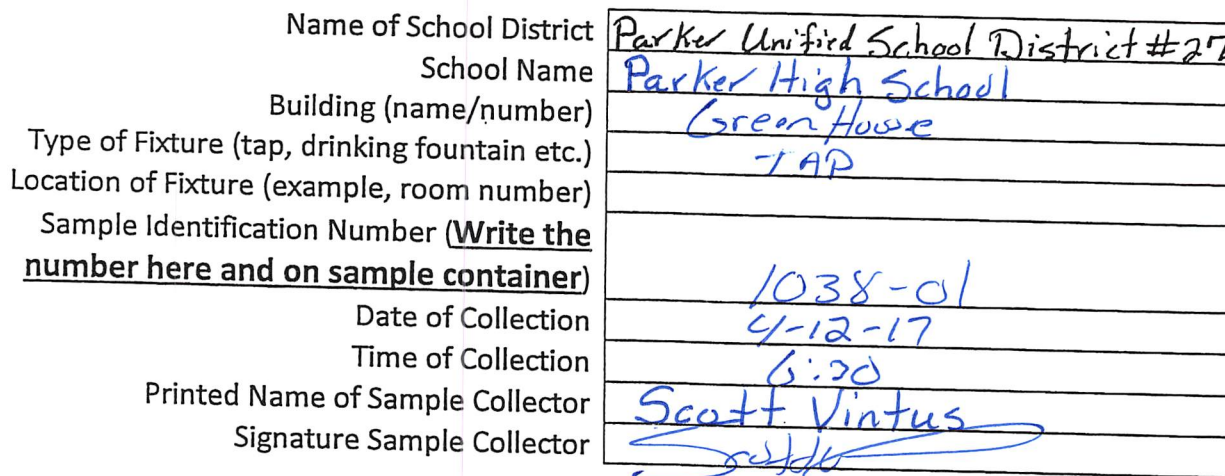 Name of School District Parker Unified School District #27
School Name Parker High School
Building (name/number) Green House
Type of Fixture (tap, drinking fountain etc.) TAP
Location of Fixture (example, room number)
Sample Identification Number (Write the
number here and on sample container) 1038-01
Date of Collection 4-12-17
Time of Collection
Printed Name of Sample Collector Scott Vintus
Signature Sample Collector